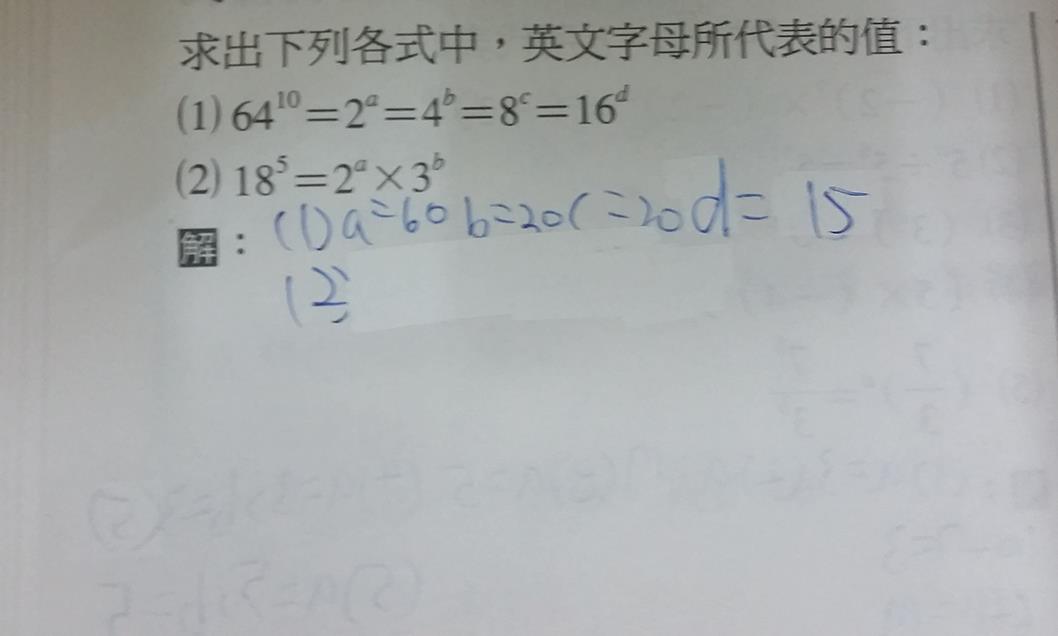 求出下列各式中，英文字母所代表的值：
(1) 64¹⁰=2ᵃ=4ᵇ=8ᶜ=16ᵈ
(2) 18⁵=2ᵃ×3ᵇ
解：(1)a=60 b=20 c=20 d=15
(2)